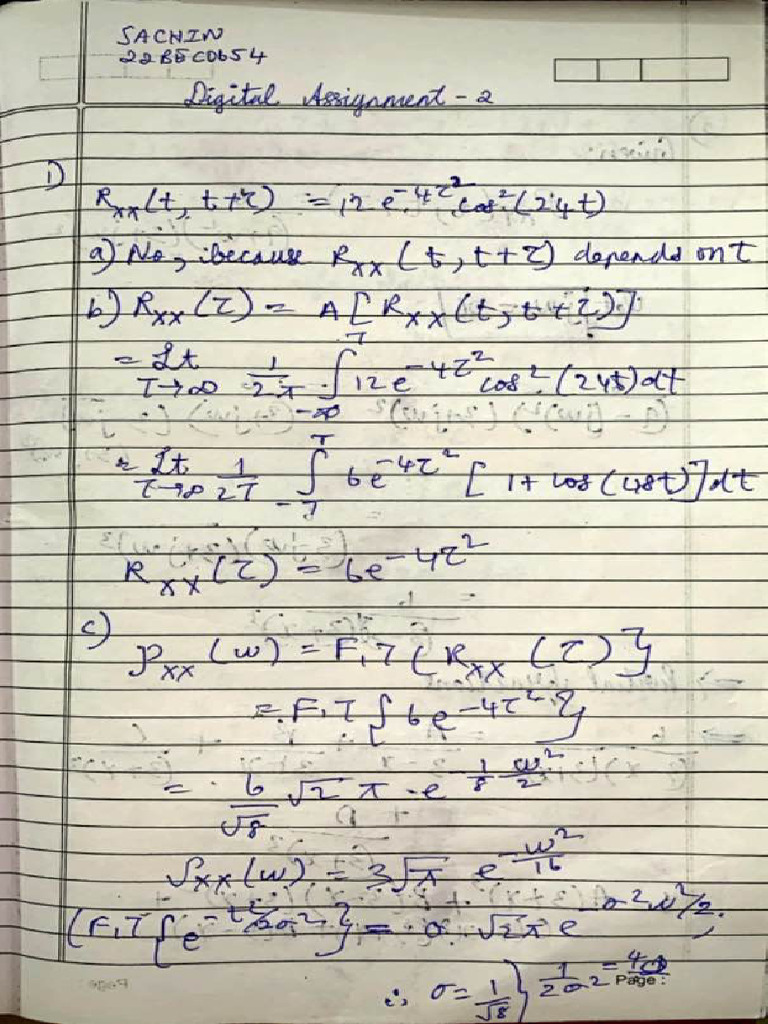 SACHIN
22BEC0654
Digital Assignment - 2
1)
R_xx(t, t+τ) = 12 e^{-4τ^2} cos^2(24t)
a) No, because R_xx (t, t+τ) depends on t
b) R_xx (τ) = A[R_xx(t, t+τ)]
= Lt_{T→∞} 1/2π ∫_{-∞}^{T} 12e^{-4τ^2} cos^2 (24t) dt
= Lt_{T→∞} 1/2T ∫_{-T}^{T} 6e^{-4τ^2} [1+ cos(48t)] dt
R_xx (τ) = 6e^{-4τ^2}
c)
P_xx (w) = F.T {R_xx (τ)}
= F.T {6e^{-4τ^2}}
= 6/√8 √2π · e^{-1/8 w^2/2}
S_xx(w) = 3√π e^{-w^2/16}
(F.T {e^{-t^2/2σ^2}} = σ √2π e^{-σ^2w^2/2},
∴ σ = 1/√8 } 1/2σ^2 = 4
Page :